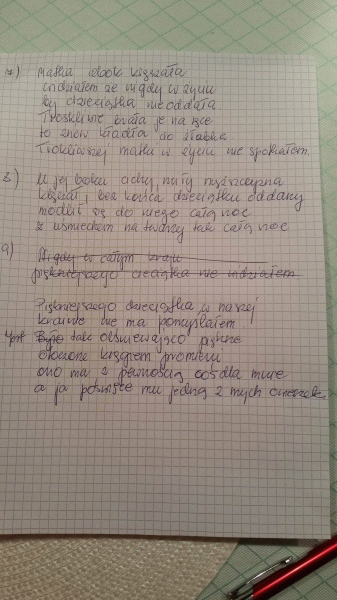 7) Matka obok klęczała
widziałem że nigdy w życiu
by dzieciątka nie oddała
Troskliwie brała je na ręce
to znów kładła do żłobka
Troskliwszej matki w życiu nie spotkałem.
8) U jej boku cichy, miły mężczyzna
klęczał, bez końca dzieciątku oddany
modlił się do niego całą noc
z uśmiechem na twarzy tak całą noc
9) Nigdy w całym kraju
piękniejszego dzieciątka nie widziałem
Piękniejszego dzieciątka, w naszej
krainie nie ma pomyślałem
Było tak olśniewająco piękne
otoczone kręgiem promieni
ono ma z pewnością coś dla mnie
a ja poświęcę mu jedną z mych owieczek